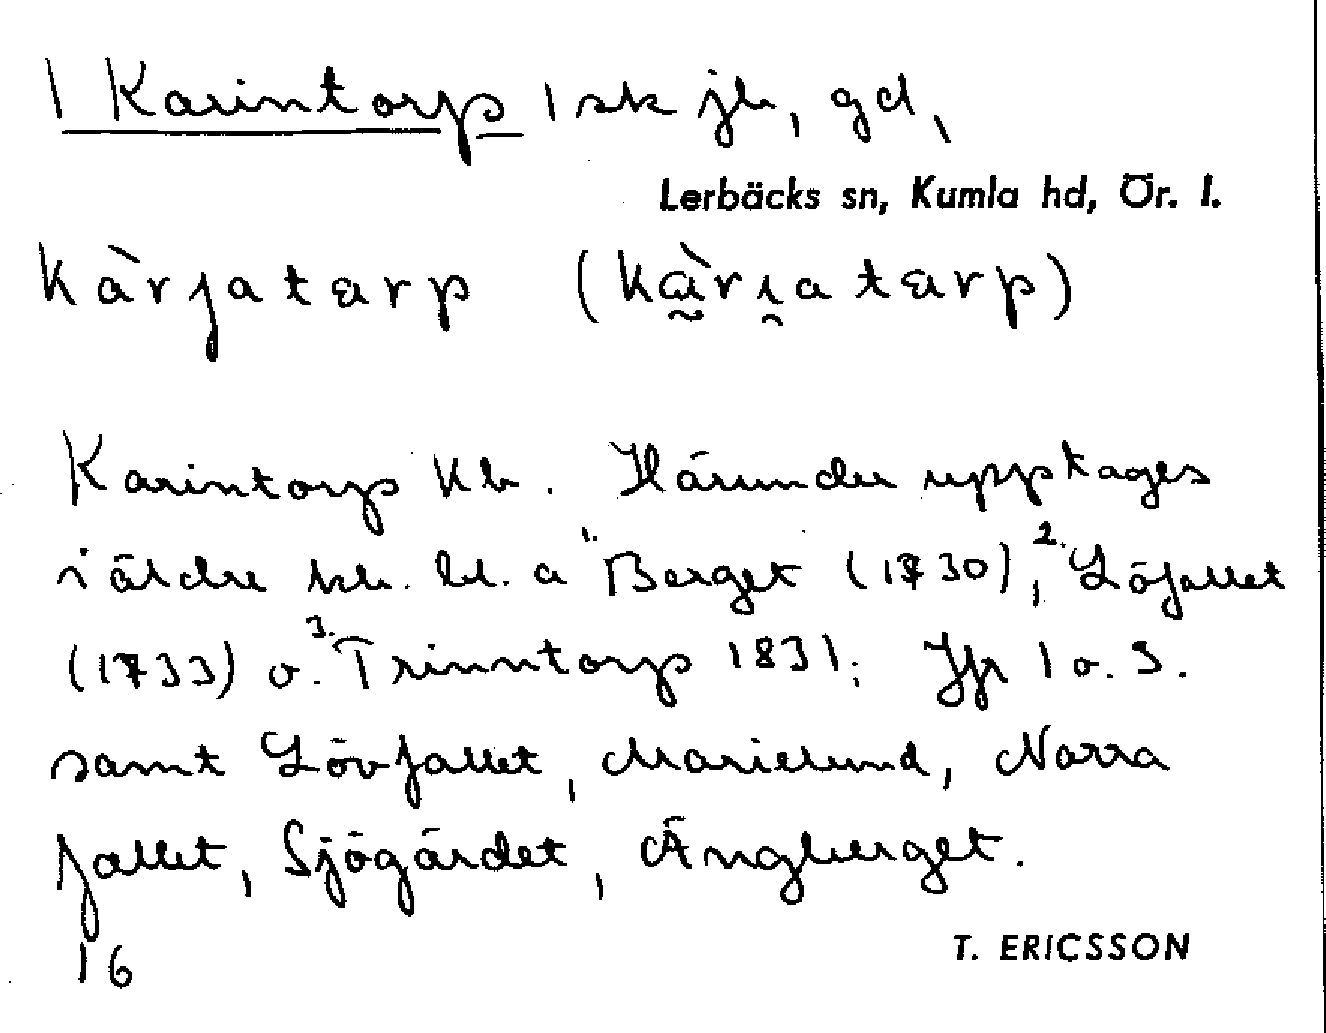 1 Karintorp 1 sk jb, gd,
Lerbäcks sn, Kumla hd, Ör. l.
kàrjatarp (kàrịatarp)
Karintorp Kb. Härunder upptages
i äldre kb. bl. a 1. Berget (1730), 2. Löfallet
(1733) o. 3. Trinntorp 1831. Jfr 1 o. 3.
samt Lövfallet, Marielund, Norra
fallet, Sjögärdet, Ängberget.
16
T. ERICSSON